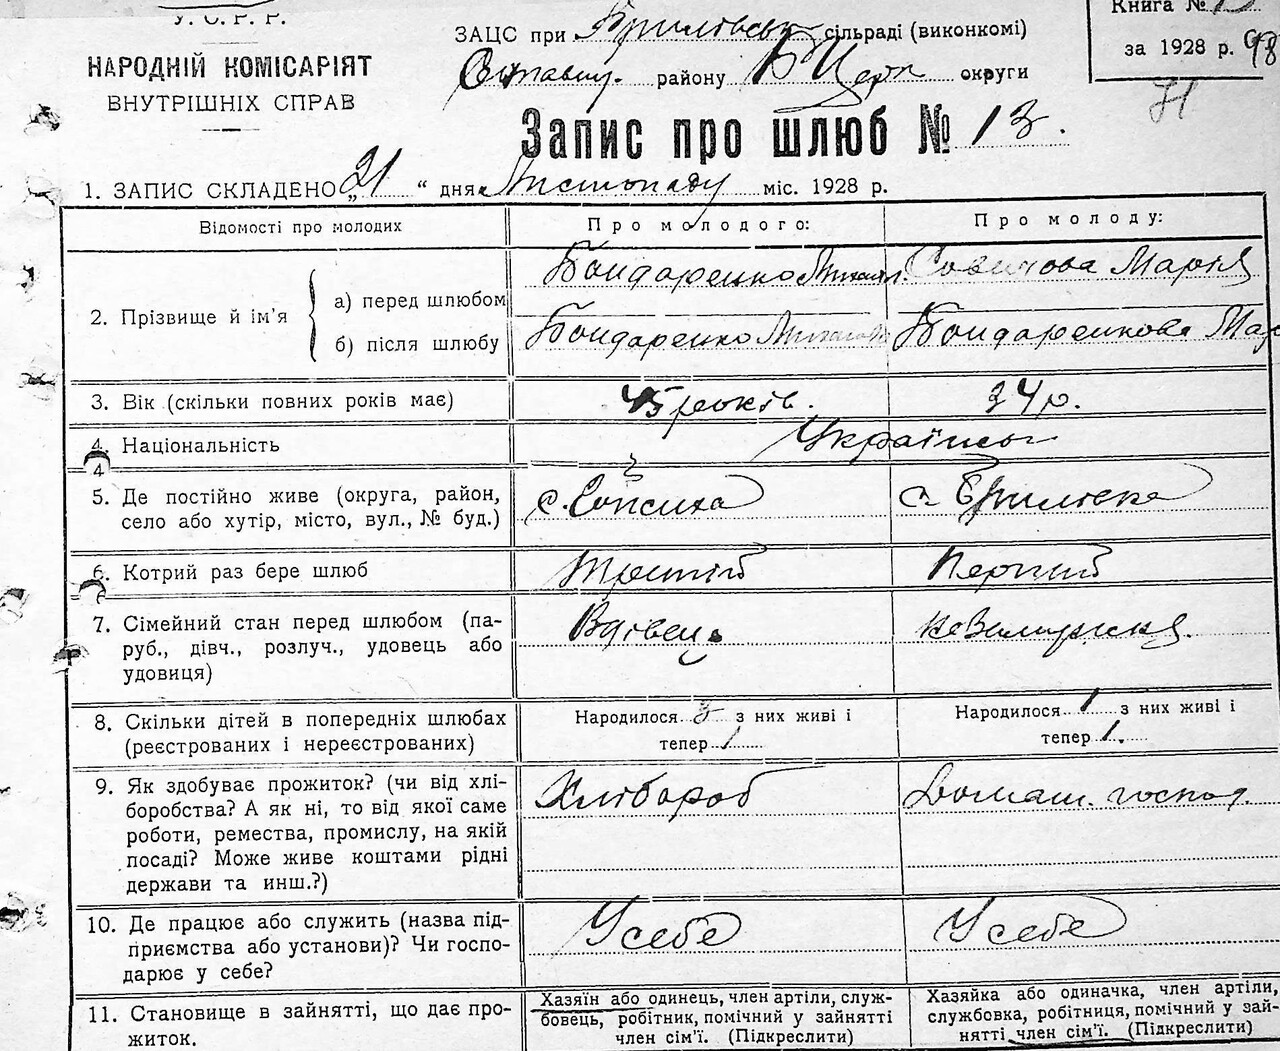 У. С. Р. Р.
НАРОДНІЙ КОМІСАРІЯТ
ВНУТРІШНІХ СПРАВ
ЗАЦС при сільраді (виконкомі)
району Б Церк округи
Книга №
за 1928 р.
71
Запис про шлюб № 13.
1. ЗАПИС СКЛАДЕНО „21“ дня Листопаду міс. 1928 р.
Відомості про молодих
Про молодого:
Про молоду:
2. Прізвище й ім’я
а) перед шлюбом
Бондаренко Михайл.
Марія
б) після шлюбу
Бондаренко
Бондаренкова Мар
3. Вік (скільки повних років має)
45 років.
34 р.
4. Національність
4
5. Де постійно живе (округа, район,
село або хутір, місто, вул., № буд.)
с.
с.
6. Котрий раз бере шлюб
Третій
Перший
7. Сімейний стан перед шлюбом (па-
руб., дівч., розлуч., удовець або
удовиця)
Вдівець
8. Скільки дітей в попередніх шлюбах
(реєстрованих і нереєстрованих)
Народилося 3 з них живі і
тепер 1
Народилося 1 з них живі і
тепер 1.
9. Як здобуває прожиток? (чи від хлі-
боробства? А як ні, то від якої саме
роботи, ремества, промислу, на якій
посаді? Може живе коштами рідні
держави та инш.?)
Хлібороб
Домаш. господ.
10. Де працює або служить (назва під-
приємства або установи)? Чи госпо-
дарює у себе?
У себе
У себе
11. Становище в зайнятті, що дає про-
житок.
Хазяїн або одинець, член артілі, служ-
бовець, робітник, помічний у зайнятті
член сім’ї. (Підкреслити)
Хазяйка або одиначка, член артілі,
службовка, робітниця, помічний у зай-
нятті член сім’ї. (Підкреслити)